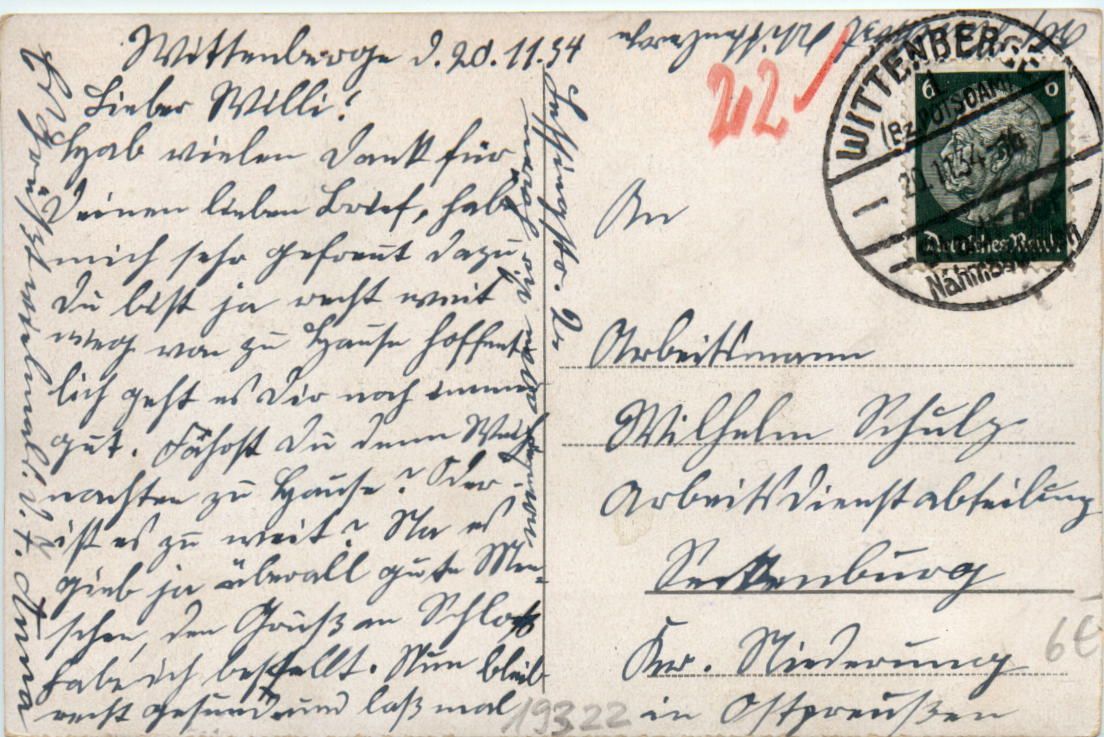 Wittenberge d. 20.11.34
Lieber Willi!
Hab vielen Dank für
Deinen lieben Brief, habe
mich sehr gefreut dazu.
Du bist ja recht weit
weg von zu Hause hoffent-
lich geht es Dir noch immer
gut. Fährst Du denn Weih-
nachten zu Hause? Oder
ist es zu weit? Na es
gieb ja überall gute Men-
schen, den Gruß an
habe ich bestellt. Nun bleib
recht gesund und laß mal
wieder von Dir hören
Es grüßt vielmals D. T. Anna
22
WITTENBERGE
(Bz. POTSDAM)
20.11.34
Nähmaschinen
6 6
Deutsches Reich
An
Arbeitsmann
Wilhelm Schulz
Arbeitsdienstabteilung
Seckenburg
Kr. Niederung
in Ostpreußen
6€
19322